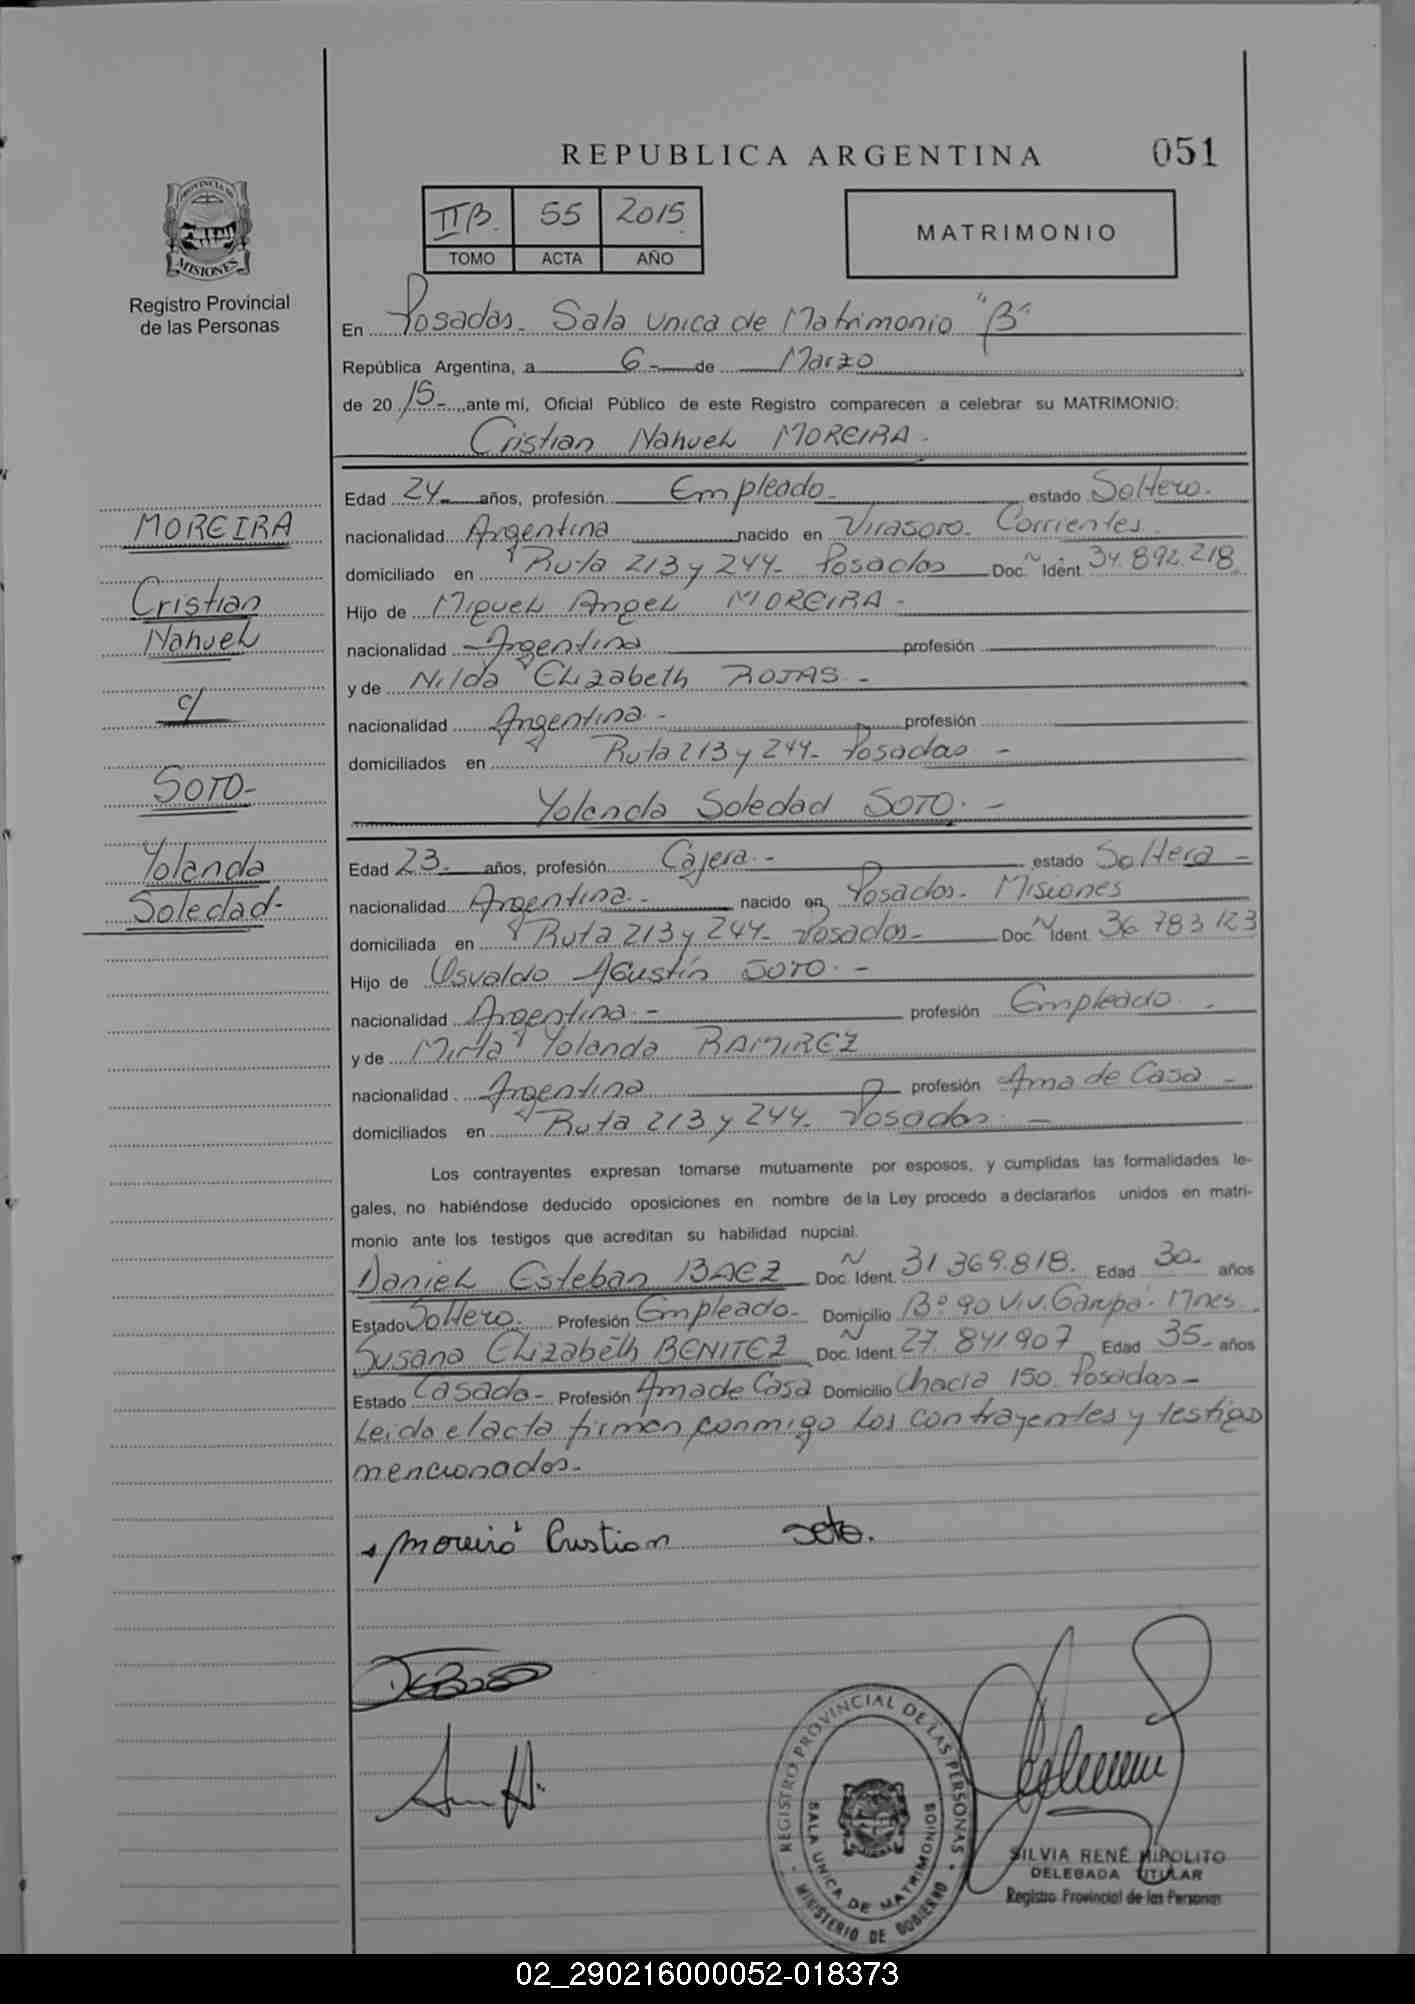 REPUBLICA ARGENTINA 051
PROVINCIA DE MISIONES
Registro Provincial
de las Personas
IIB. 55 2015
TOMO ACTA AÑO
MATRIMONIO
En Posadas. Sala Unica de Matrimonio "B"
República Argentina, a 6- de Marzo
de 20 15- ante mí, Oficial Público de este Registro comparecen a celebrar su MATRIMONIO:
Cristian Nahuel MOREIRA.
Edad 24 años, profesión Empleado- estado Soltero.
nacionalidad Argentina nacido en Virasoro. Corrientes
domiciliado en Ruta 213 y 244- Posadas Doc. N Ident. 34.892.218
Hijo de Miguel Angel MOREIRA-
nacionalidad Argentina profesión
y de Nilda Elizabeth ROJAS.-
nacionalidad Argentina.- profesión
domiciliados en Ruta 213 y 244- Posadas -
MOREIRA
Cristian
Nahuel
c/
SOTO-
Yolanda
Soledad-
Yolanda Soledad SOTO.-
Edad 23- años, profesión Cajera.- estado Soltera-
nacionalidad Argentina.- nacido en Posadas- Misiones
domiciliada en Ruta 213 y 244- Posadas- Doc. N Ident. 36 783 123
Hijo de Osvaldo Agustín SOTO.-
nacionalidad Argentina.- profesión Empleado.-
y de Mirta Yolanda RAMIREZ
nacionalidad Argentina profesión Ama de Casa-
domiciliados en Ruta 213 y 244- Posadas.-
Los contrayentes expresan tomarse mutuamente por esposos, y cumplidas las formalidades le-
gales, no habiéndose deducido oposiciones en nombre de la Ley procedo a declararlos unidos en matri-
monio ante los testigos que acreditan su habilidad nupcial.
Daniel Esteban BAEZ Doc. N Ident. 31 369.818. Edad 30- años
Estado Soltero. Profesión Empleado- Domicilio B° 90 Viv. Garupá. Mnes.
Susana Elizabeth BENITEZ Doc. N Ident. 27. 841.907 Edad 35- años
Estado Casada- Profesión Ama de Casa Domicilio Chacra 150. Posadas-
Leida el acta firman conmigo los contrayentes y testigos
mencionados-
Moreira Cristian Soto.
REGISTRO PROVINCIAL DE LAS PERSONAS
SALA UNICA DE MATRIMONIOS
MINISTERIO DE GOBIERNO
SILVIA RENÉ HIPOLITO
DELEGADA TITULAR
Registro Provincial de las Personas
02_290216000052-018373